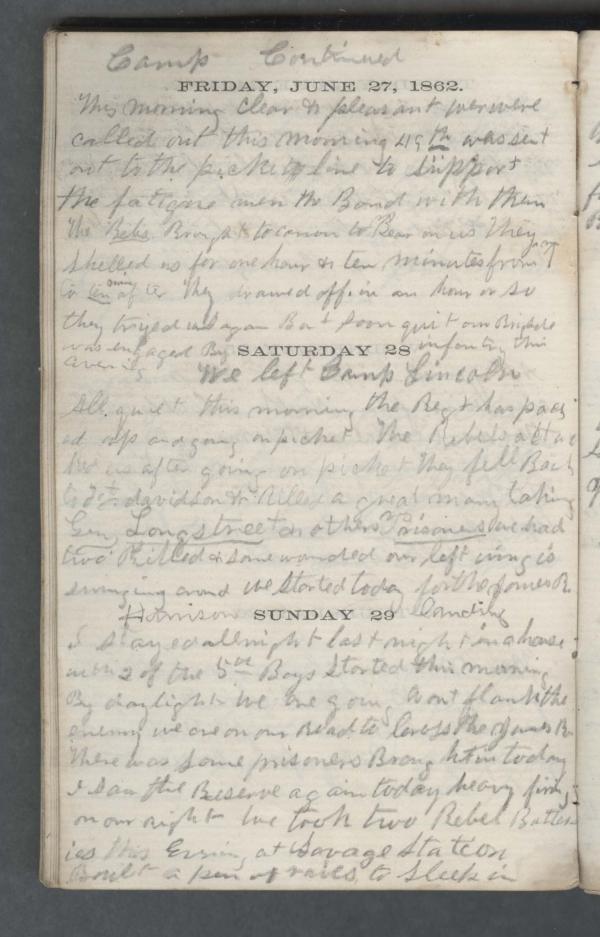 Camp Continued
FRIDAY, JUNE 27, 1862.
This morning Clear & pleasant we were
called out this morning 49th was sent
out to the picket line to Support
the fatigue men the Band with them
The Rebs Brought to Bear on us They
Shelled us for one hour & ten minutes from
to ten after They drawed off in an hour or so
they tryed us again But Soon quit our Brigade
was engaged By infantry this
Evening
SATURDAY 28
We left Camp Lincoln
All quiet this morning the Regt has pack
ed up and going on picket The Rebels attac
ked us after going on picket They fell Back
to Ft. davidson & Killed a great many taking
Gen. Longstreet & others Prisoners we had
two Killed & some wounded our left wing is
swinging around we Started today for the James R.
Harrison Landing
SUNDAY 29
I stayed all night last night in a house
with 2 of the 5th Boys Started this morning
By daylight We are going to flank the
enemy we are on our Road to Cross the James R
There was Some prisoners Brought in today
I Saw the Reserve again today heavy firing
on our right We took two Rebel Batter
ies this Evning at Savage Station
Built a pen of rails to Sleek in